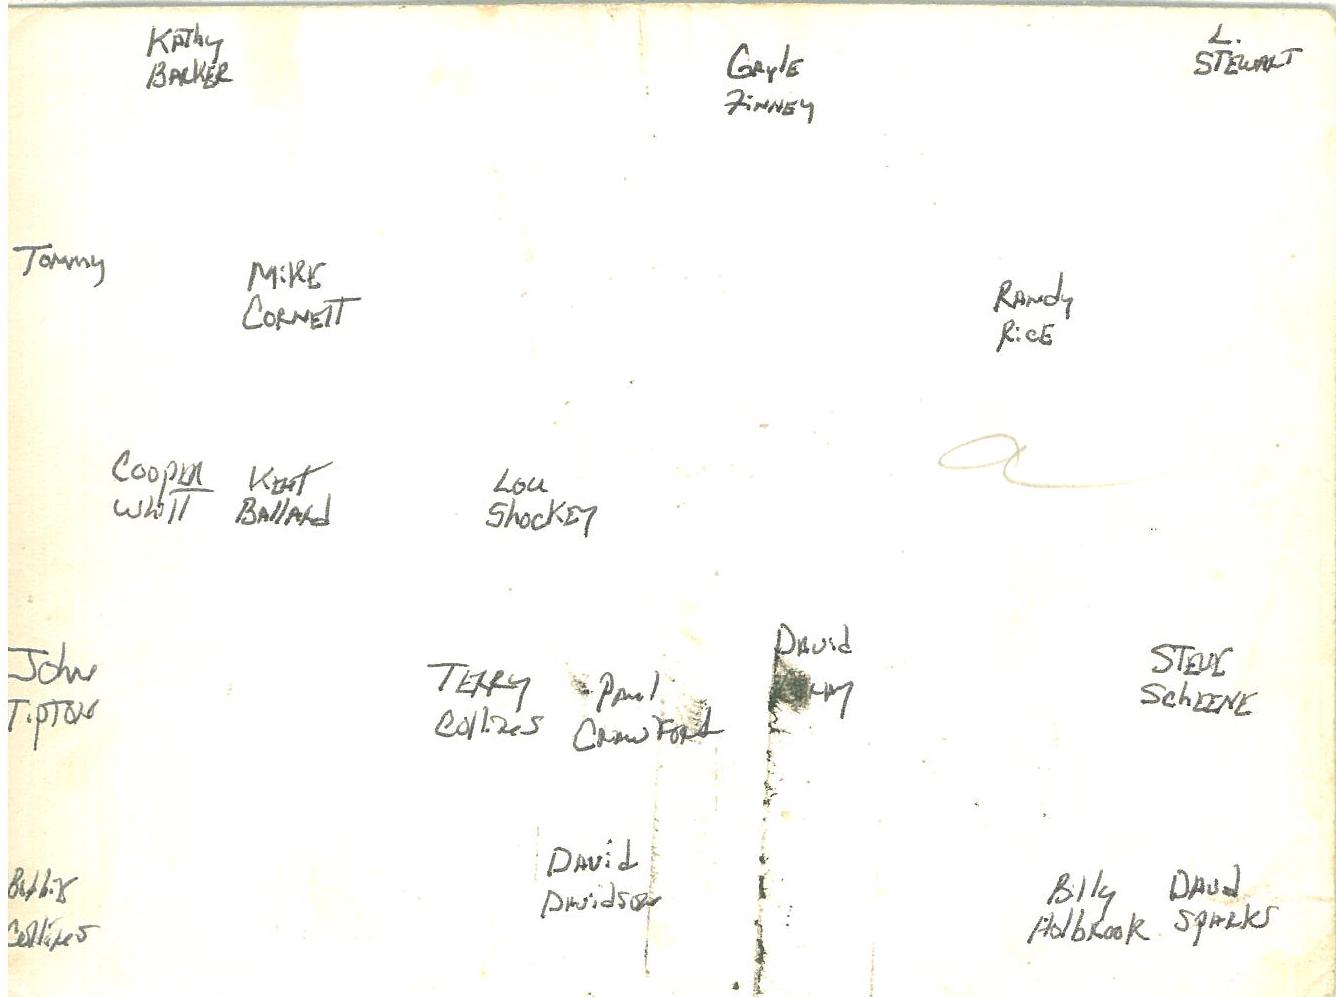 Kathy
BARKER
Gayle
Finney
L.
STEWART
Tommy
MIKE
CORNETT
Randy
RICE
Cooper
Whitt
Kent
Ballard
Lou
Shockey
John
Tipton
TERRY
Collins
Paul
Crawford
David
STEVE
SchEENE
Bobby
Collins
David
Davidson
Billy
Holbrook
David
SPARKS